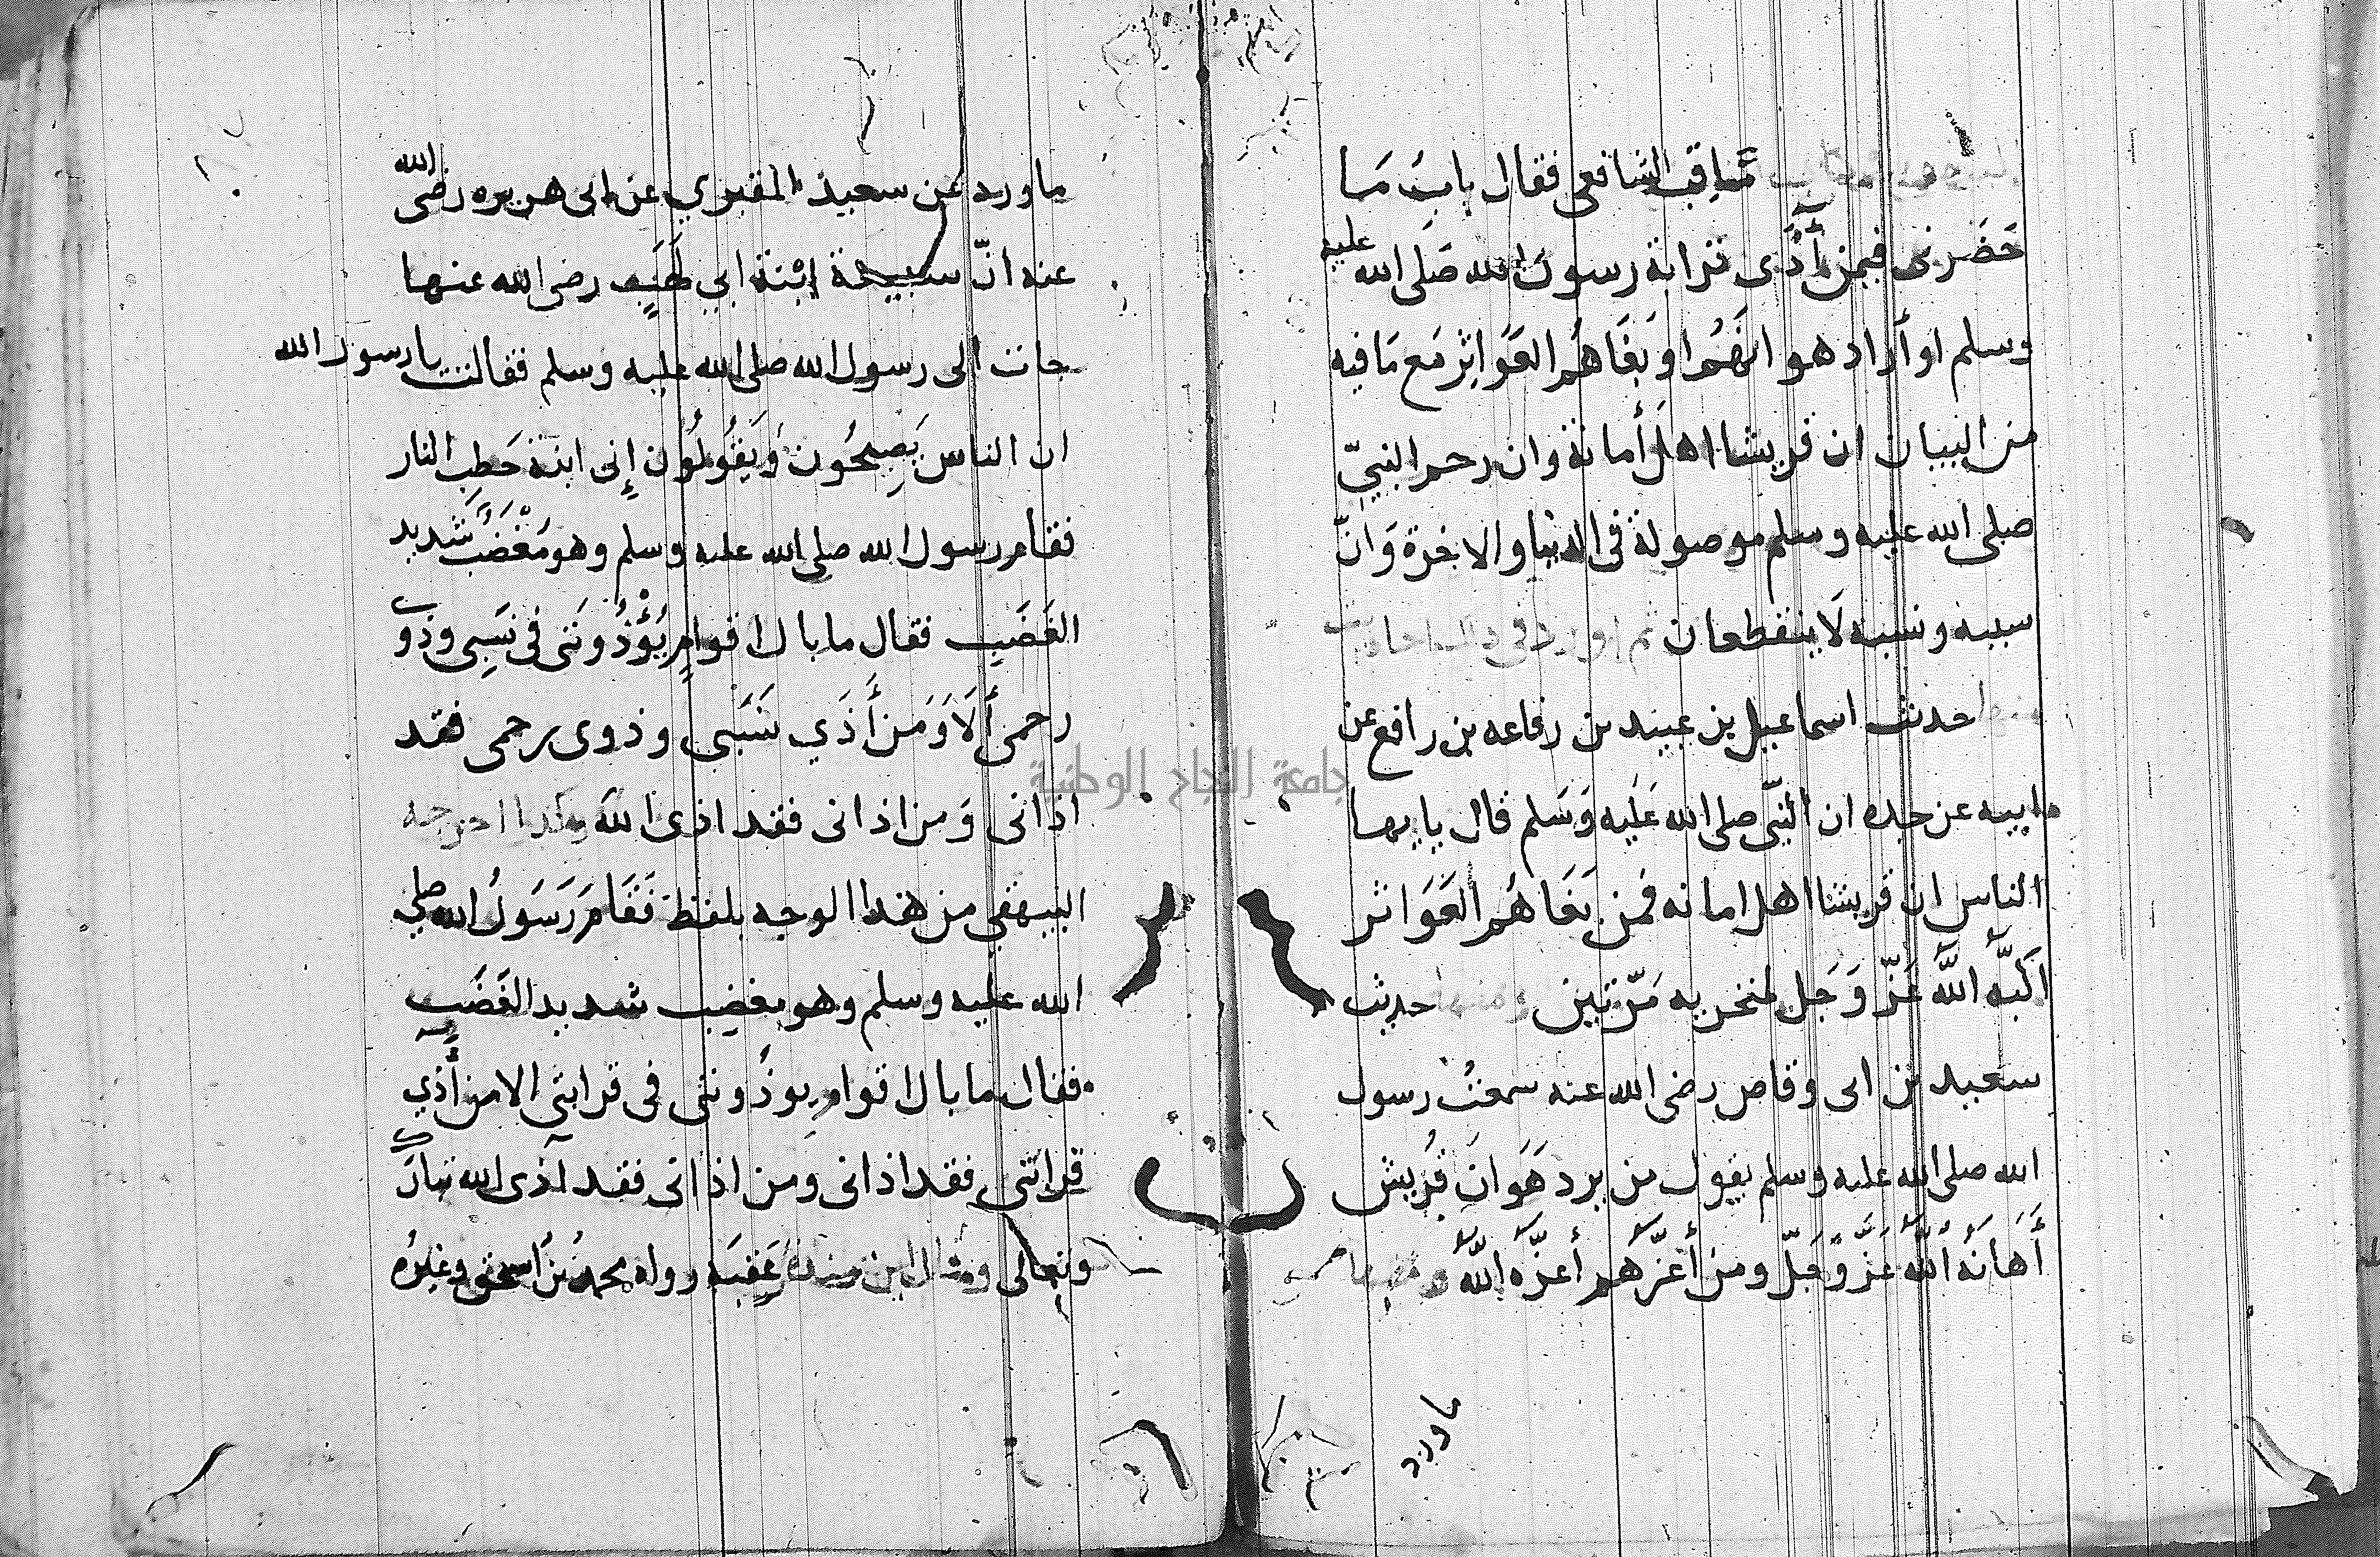 مناقب الشافعي فقال باب ما
حَضَرني فيمن أَذَى قرابة رسول الله صَلى الله عليه
وسلم او أراد هو انهُم او بَغَاهُم العَوَاثِر مَع مَا فيه
من البيان ان قريشا اهل أمانة وان رحم النبيّ
صلى الله عليه وسلم موصولة في الدنيا والاخرة وَانّ
سببه ونسبه لَا ينقطعان ثم اورد في ذلك احاديث
منها حديث اسماعيل بن عبيد بن رفاعه بن رافع عن
ابيه عن جده ان النبّي صلى الله عَلَيه وَسَلم قال يا يها
الناس ان قريشا اهل امانه فمن بَغَاهُم العَوَاثر
اَكَبَّه اللَّه عَزّ وَجَل لمنخريه مَرّتين ومنها حديث
سعيد بن ابى وقاص رضى الله عنه سمعتُ رسول
الله صلى الله عليه وسلم يقول من يرد هَوَانَ قُريش
أَهَانَهُ اللَّه عَزَّ وَجَلّ ومن أعزَّهم أعزّه اللَّه
ماورد
ماورد عن سعيد المقبري عن ابى هريره رضى الله
عنه انّ سبيعة ابْنة ابي لَهَبٍ رضى الله عنها
جات الى رسول الله صلى الله عليه وسلم فقالت يا رسول الله
ان الناس يَصِيحُون وَيَقُولُون إنى ابنة حَطبِ النار
فقام رسول الله صلى الله عليه وسلم وهو مُغْضَبٌ شَديد
الغَضَبِ فقال ما بال اقوامٍ يُؤْذُونَنى في نَسَبِى وذوي
رحمى أَلَا وَمَن أَذَي نَسَبَي وذوى رحمى فقد
اذانى وَمن اذانى فقد اذى اللهَ وكذا اخرجه
البيهقي من هذا الوجه بلفظ فَقَام رَسَولُ الله صلي
الله عليه وسلم وهو مغضِب شديد الغَضَبِ
فقال ما بال اقوام يوذُونني في قرابتي الا من أذي
قرابتي فقد اذانى ومن اذانى فقد آذى الله تبارك
وتعالى وقال ابن مندة عَقِبَه رواه محمد بنُ اسحق وغيرُه
جامعة النجاح الوطنية